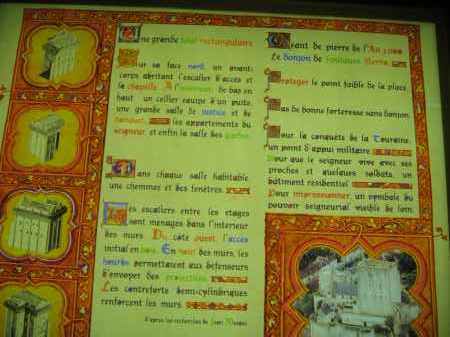 Une grande tour rectangulaire
Sur sa face nord, un avant
corps abritant l'escalier d'accès et
la chapelle. A l'intérieur de bas en
haut un cellier équipé d'un puits,
une grande salle de justice et de
banquet, les appartements du
seigneur et enfin la salle des gardes.
Dans chaque salle habitable
une cheminée et des fenêtres
Les escaliers entre les étages
sont ménagés dans l'intérieur
des murs. Du côté ouest l'accès
initial en bois. En haut des murs, les
hourds permettaient aux défenseurs
d'envoyer des projectiles
Les contreforts semi-cylindriques
renforcent les murs
d'après les recherches de Jean Mesqui
Géant de pierre de l'An 1000
Le Donjon de Foulques Nerra
Protéger le point faible de la place
Pas de bonne forteresse sans donjon
Pour la conquête de la Touraine,
un point d'appui militaire
Pour que le seigneur vive avec ses
proches et quelques soldats, un
bâtiment résidentiel
Pour impressionner, un symbole du
pouvoir seigneurial visible de loin